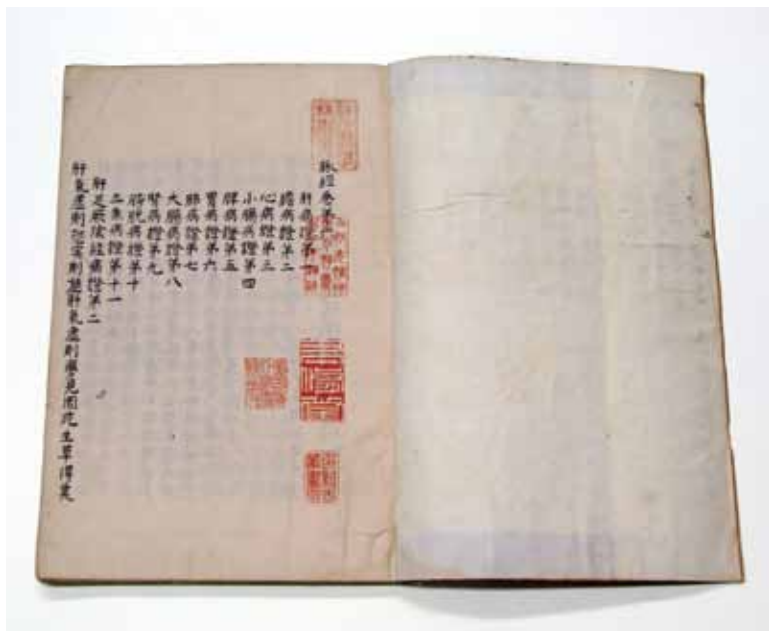 脉經卷第六
肝病證第一
膽病證第二
心病證第三
小腸病證第四
脾病證第五
胃病證第六
肺病證第七
大腸病證第八
腎病證第九
膀胱病證第十
三焦病證第十一
肝足厥陰經病證第二
肝氣虛則恐實則怒肝氣虛則夢見園苑生草得其